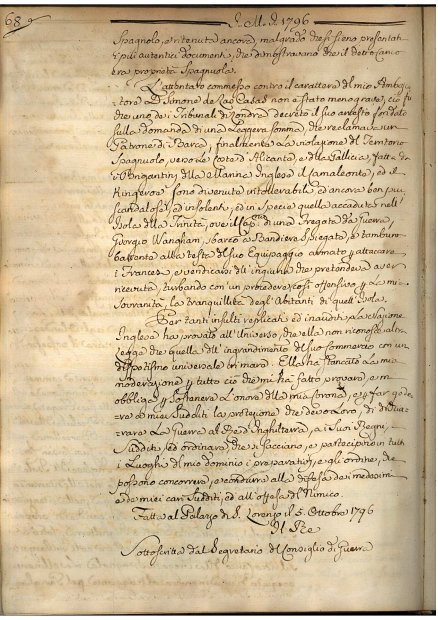 68
A. M. D. 1796
Spagnolo, e ritenuta ancora, malgrado che si sieno presentati
i più autentici documenti, che dimostravano che il detto carico
era proprietà Spagnuola.
L'attentato commesso contro il carattere del mio Ambascia
tore D. Simone de Las Casas non è stato meno grave, ciò fu
che uno dei Tribunali di Londra decretò il suo arresto fondato
sulla domanda di una leggera somma, che reclamava un
Patrone di Barca, finalmente la violazione del Territorio
Spagnuolo, verso le Coste d'Alicante, e della Gallicia, fatta da
i Brigantini della Marina Inglese il Camaleonte, ed il
Kingeroe sono divenute intollerabili, ed ancora ben più
scandalosa, ed insolente, ed in specie quella accaduta nell'
Isola della Trinità, ove il Cap. di una Fregata da Guerra,
Giorgio Waugham, sbarcò a Bandiera Spiegata, e tamburo
battente alla testa del suo Equipaggio armato per attaccare
i Francesi, e vendicarsi dell'ingiuria che pretendeva aver
ricevuta, turbando con un procedere così offensivo per la mia
Sovranità, la tranquillità degl'Abitanti di quell'Isola.
Per tanti insulti replicati ed inauditi, la Nazione
Inglese ha provato all'Universo, che ella non riconosce altra
Legge che quella dell'ingrandimento del suo commercio con un
dispotismo universale in mare. Ella ha stancato la mia
moderazione per tutto ciò che mi ha fatto provare, e m'
obbliga per sostenere l'onore della mia Corona, e per far gode
re a' miei Sudditi la protezione che devo Loro, di dichia
rare la Guerra al Re d'Inghilterra, a i Suoi Regni,
Sudditi, ed ordinare, che si facciano, e partecipino in tutti
i Luoghi del mio dominio i preparativi, e gli ordini, che
possono concorrere, e condurre alla difesa dei medesimi
e de miei cari Sudditi, ed all'offesa del Nimico.
Fatta al Palazzo di S. Lorenzo il 5. Ottobre 1796
Il Re
Sottoscritta dal Segretario del Consiglio di Guerra